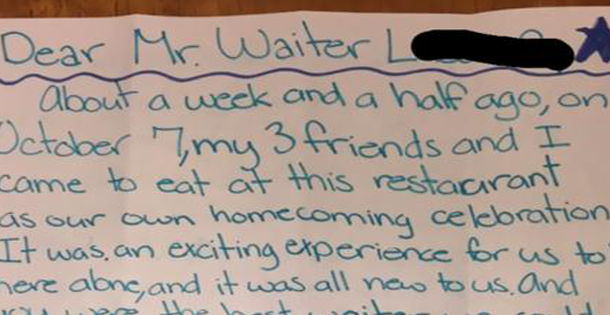 Dear Mr. Waiter L
About a week and a half ago, on
October 7, my 3 friends and I
came to eat at this restaurant
as our own homecoming celebration
It was an exciting experience for us to
here alone, and it was all new to us. And
were the best